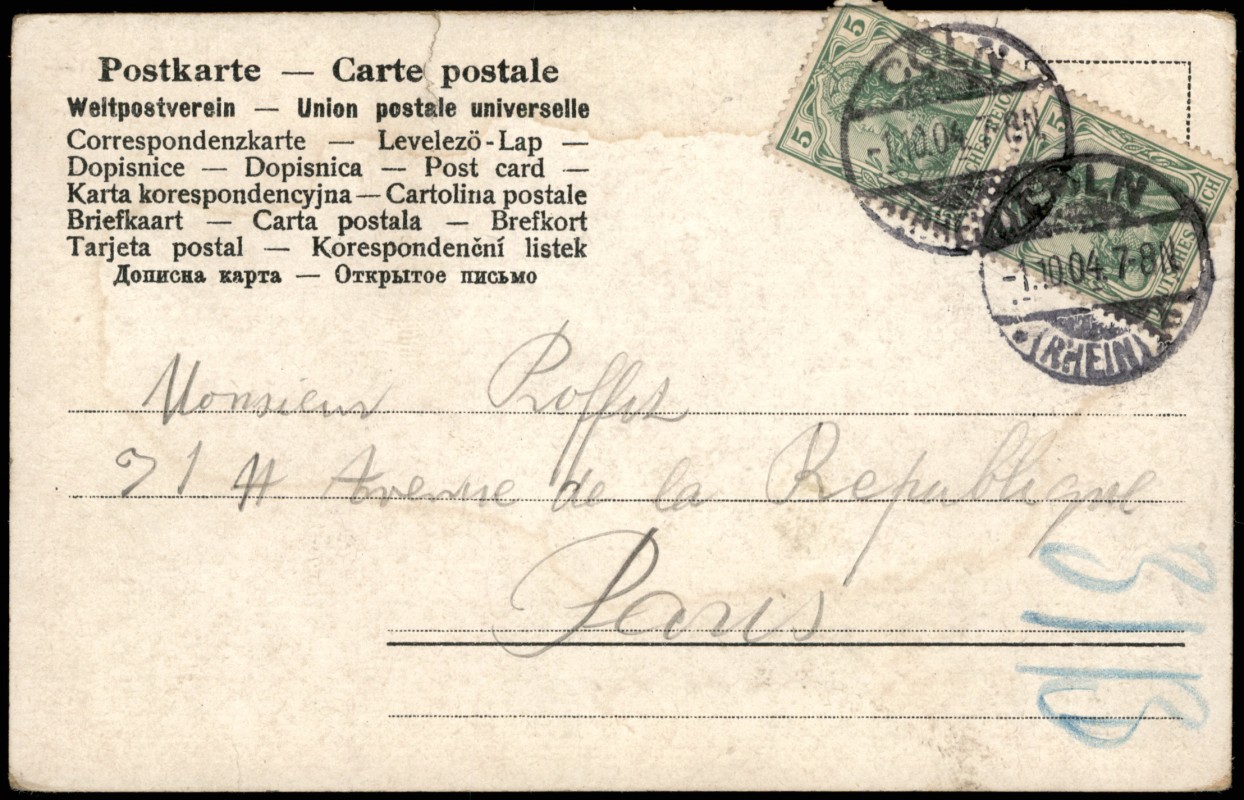 Postkarte — Carte postale
Weltpostverein — Union postale universelle
Correspondenzkarte — Levelező-Lap —
Dopisnice — Dopisnica — Post card —
Karta korespondencyjna — Cartolina postale
Briefkaart — Carta postala — Brefkort
Tarjeta postal — Korespondenční listek
Дописна карта — Открытое письмо
5 5
CÖLN
-1.10.04. 7-8N
(RHEIN)
5
CÖLN
-1.10.04. 7-8N
(RHEIN)
Monsieur Roffet
71 Avenue de la Republique
Paris